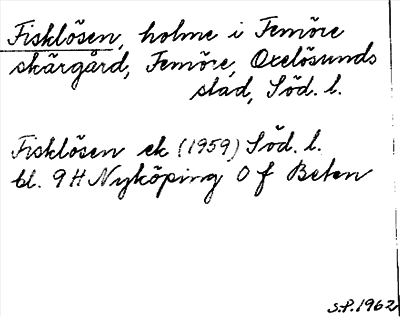 Fisklösen, holme i Femöre
skärgård, Femöre, Oxelösunds
stad, Söd. l.
Fisklösen ek (1959) Söd. l.
bl. 9 H Nyköping 0 f Beten
S.P. 1962